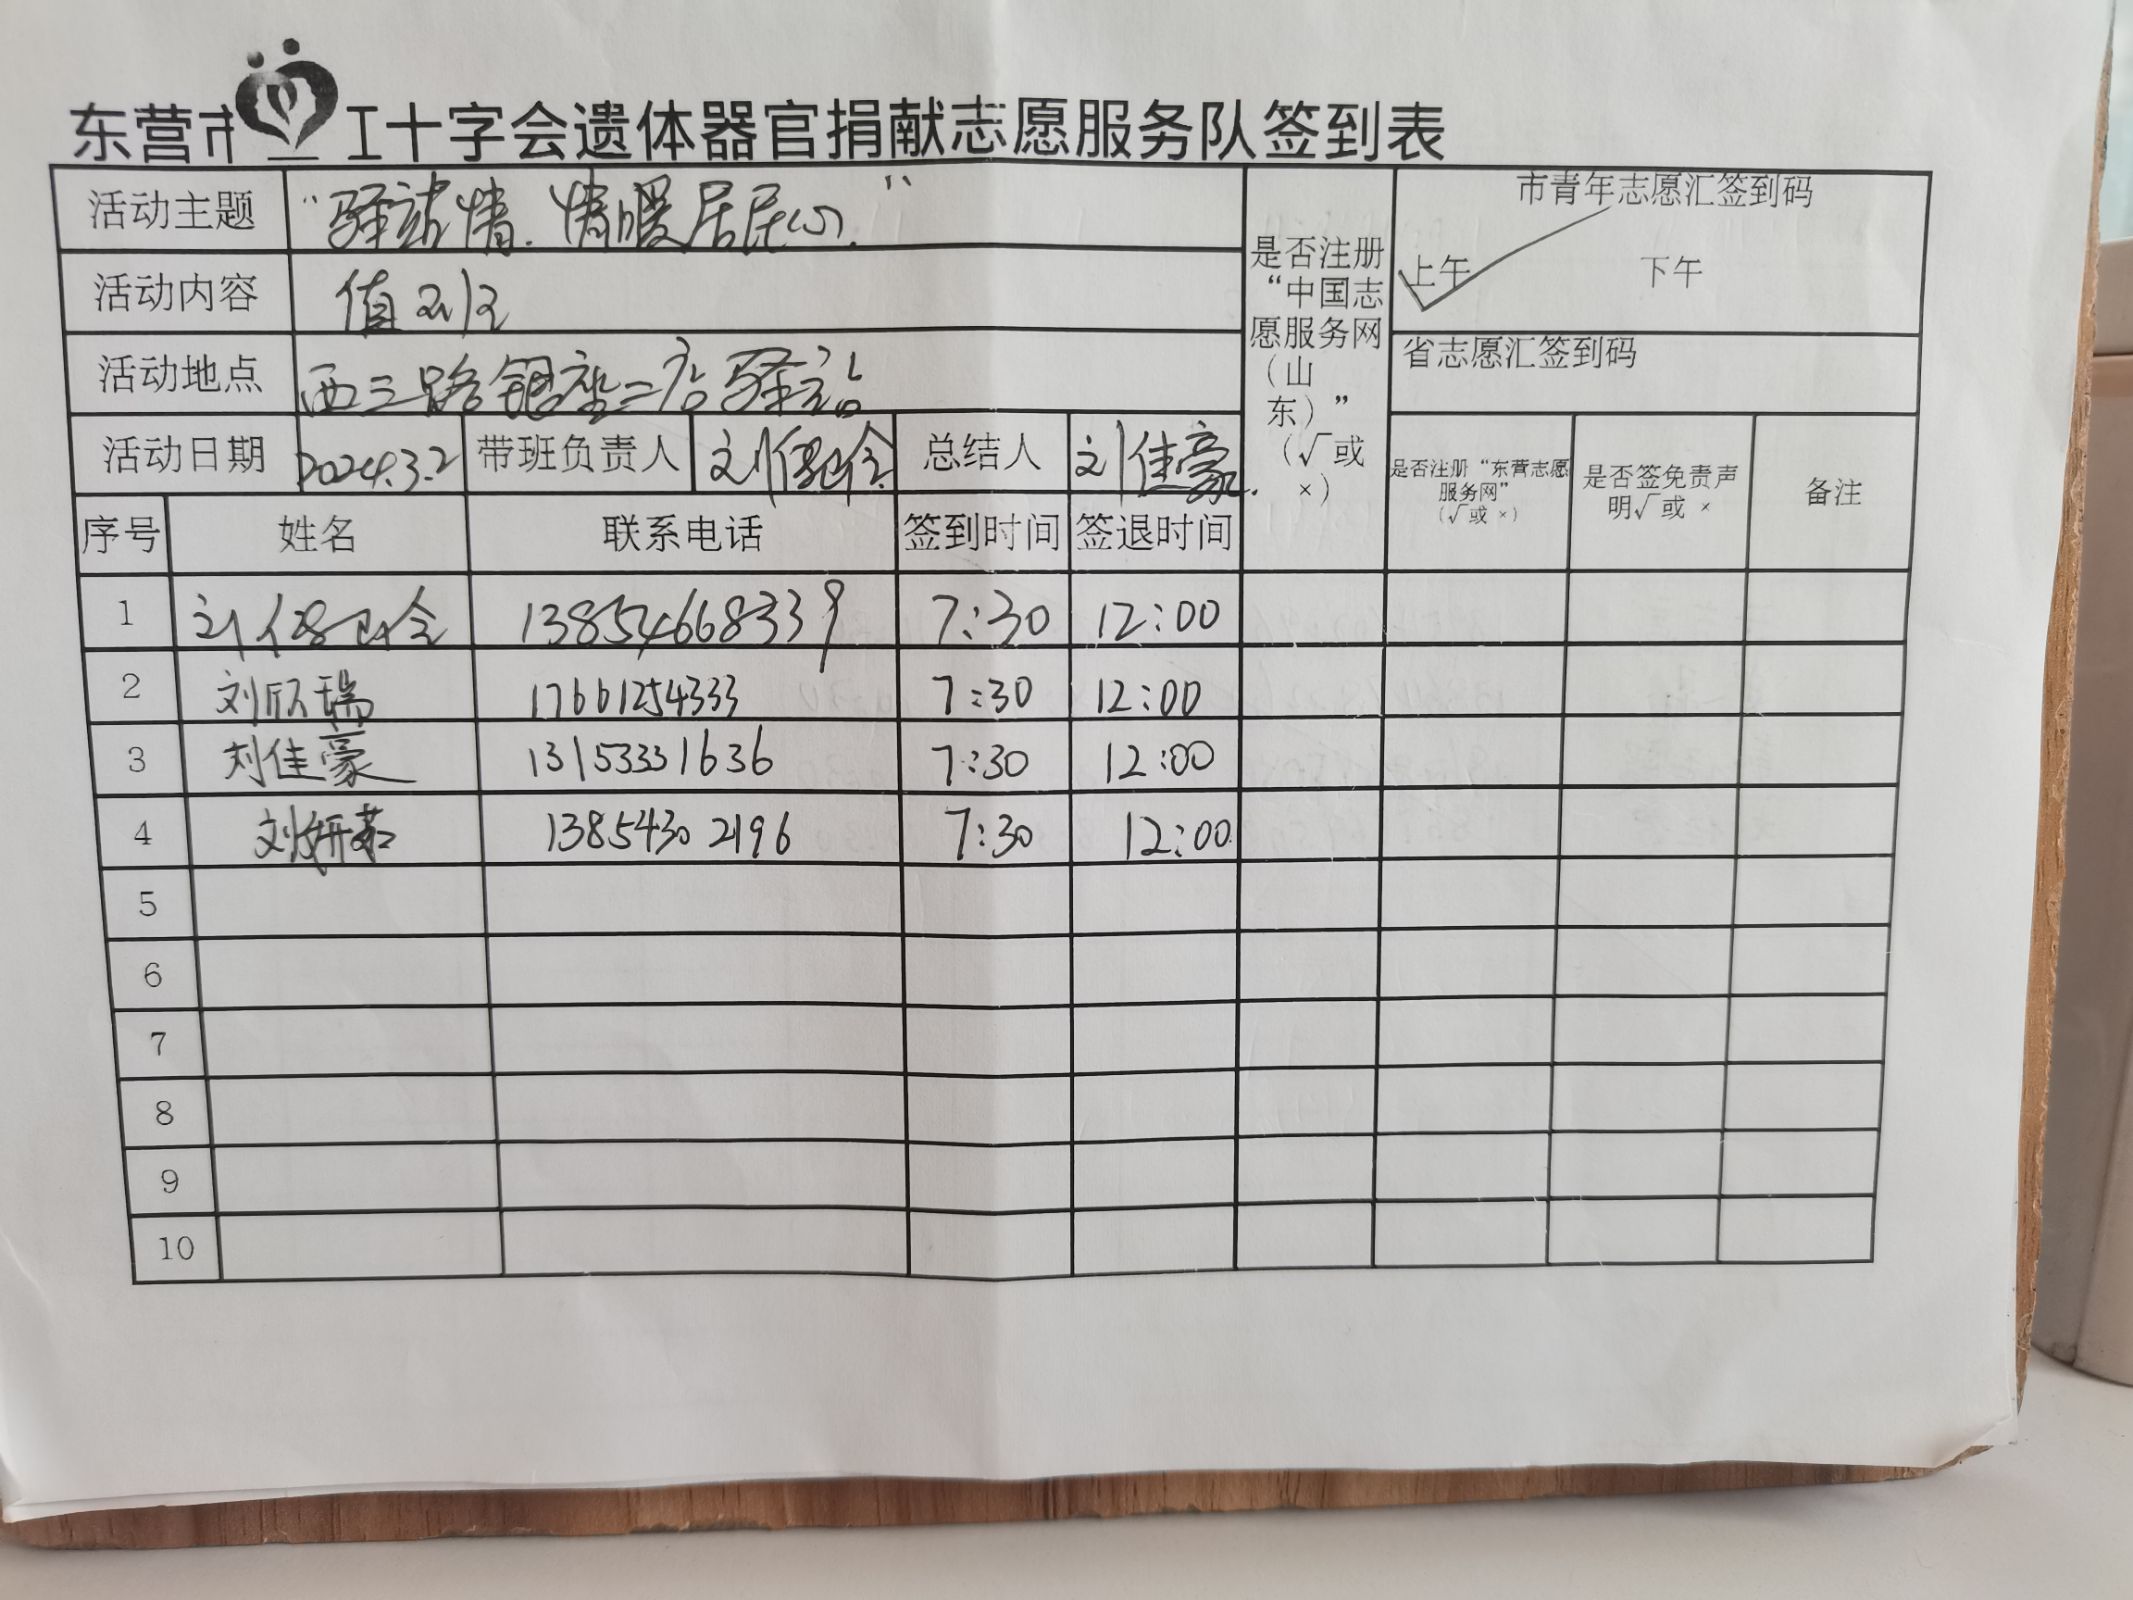 东营市 红十字会遗体器官捐献志愿服务队签到表
活动主题 “驿站情.情暖居民心.”
活动内容 值班
活动地点 西三路银座二店驿站
活动日期 2024.3.2 带班负责人 刘 总结人 刘佳豪.
是否注册“中国志愿服务网(山东)”(√或×)
市青年志愿汇签到码
上午 下午
省志愿汇签到码
序号 姓名 联系电话 签到时间 签退时间 是否注册“东营志愿服务网”(√或×) 是否签免责声明√或× 备注
1 刘 13854668339 7:30 12:00
2 刘欣瑞 17661254333 7:30 12:00
3 刘佳豪 13153331636 7:30 12:00
4 刘妍茹 13854302196 7:30 12:00
5
6
7
8
9
10